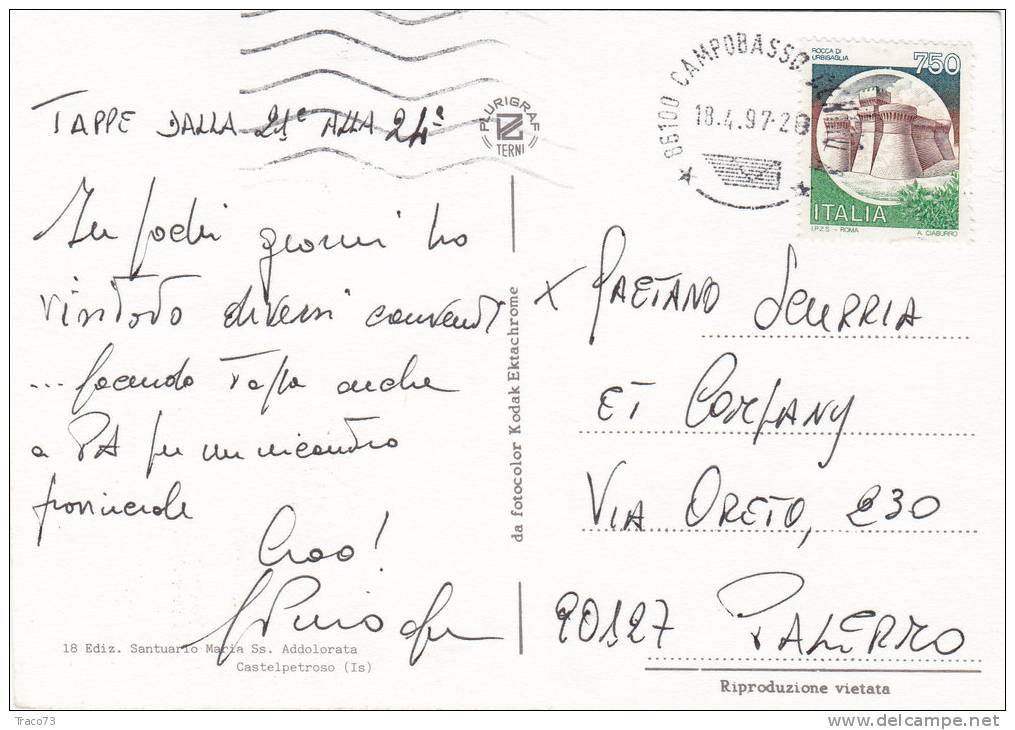 TAPPE DALLA 21ª ALLA 24ª
In pochi giorni ho
visitato diversi conventi
... facendo tappa anche
a PA per un incontro
provinciale
Ciao!
18 Ediz. Santuario Maria Ss. Addolorata
Castelpetroso (Is)
PLURIGRAF
TERNI
da fotocolor Kodak Ektachrome
86100 CAMPOBASSO
18.4.97-20
ROCCA DI
URBISAGLIA
750
ITALIA
I.P.Z.S. - ROMA
A. CIABURRO
x GAETANO SCURRIA
ET COMPANY
VIA ORETO, 230
90127 PALERMO
Riproduzione vietata
Traco73
delcampe.net